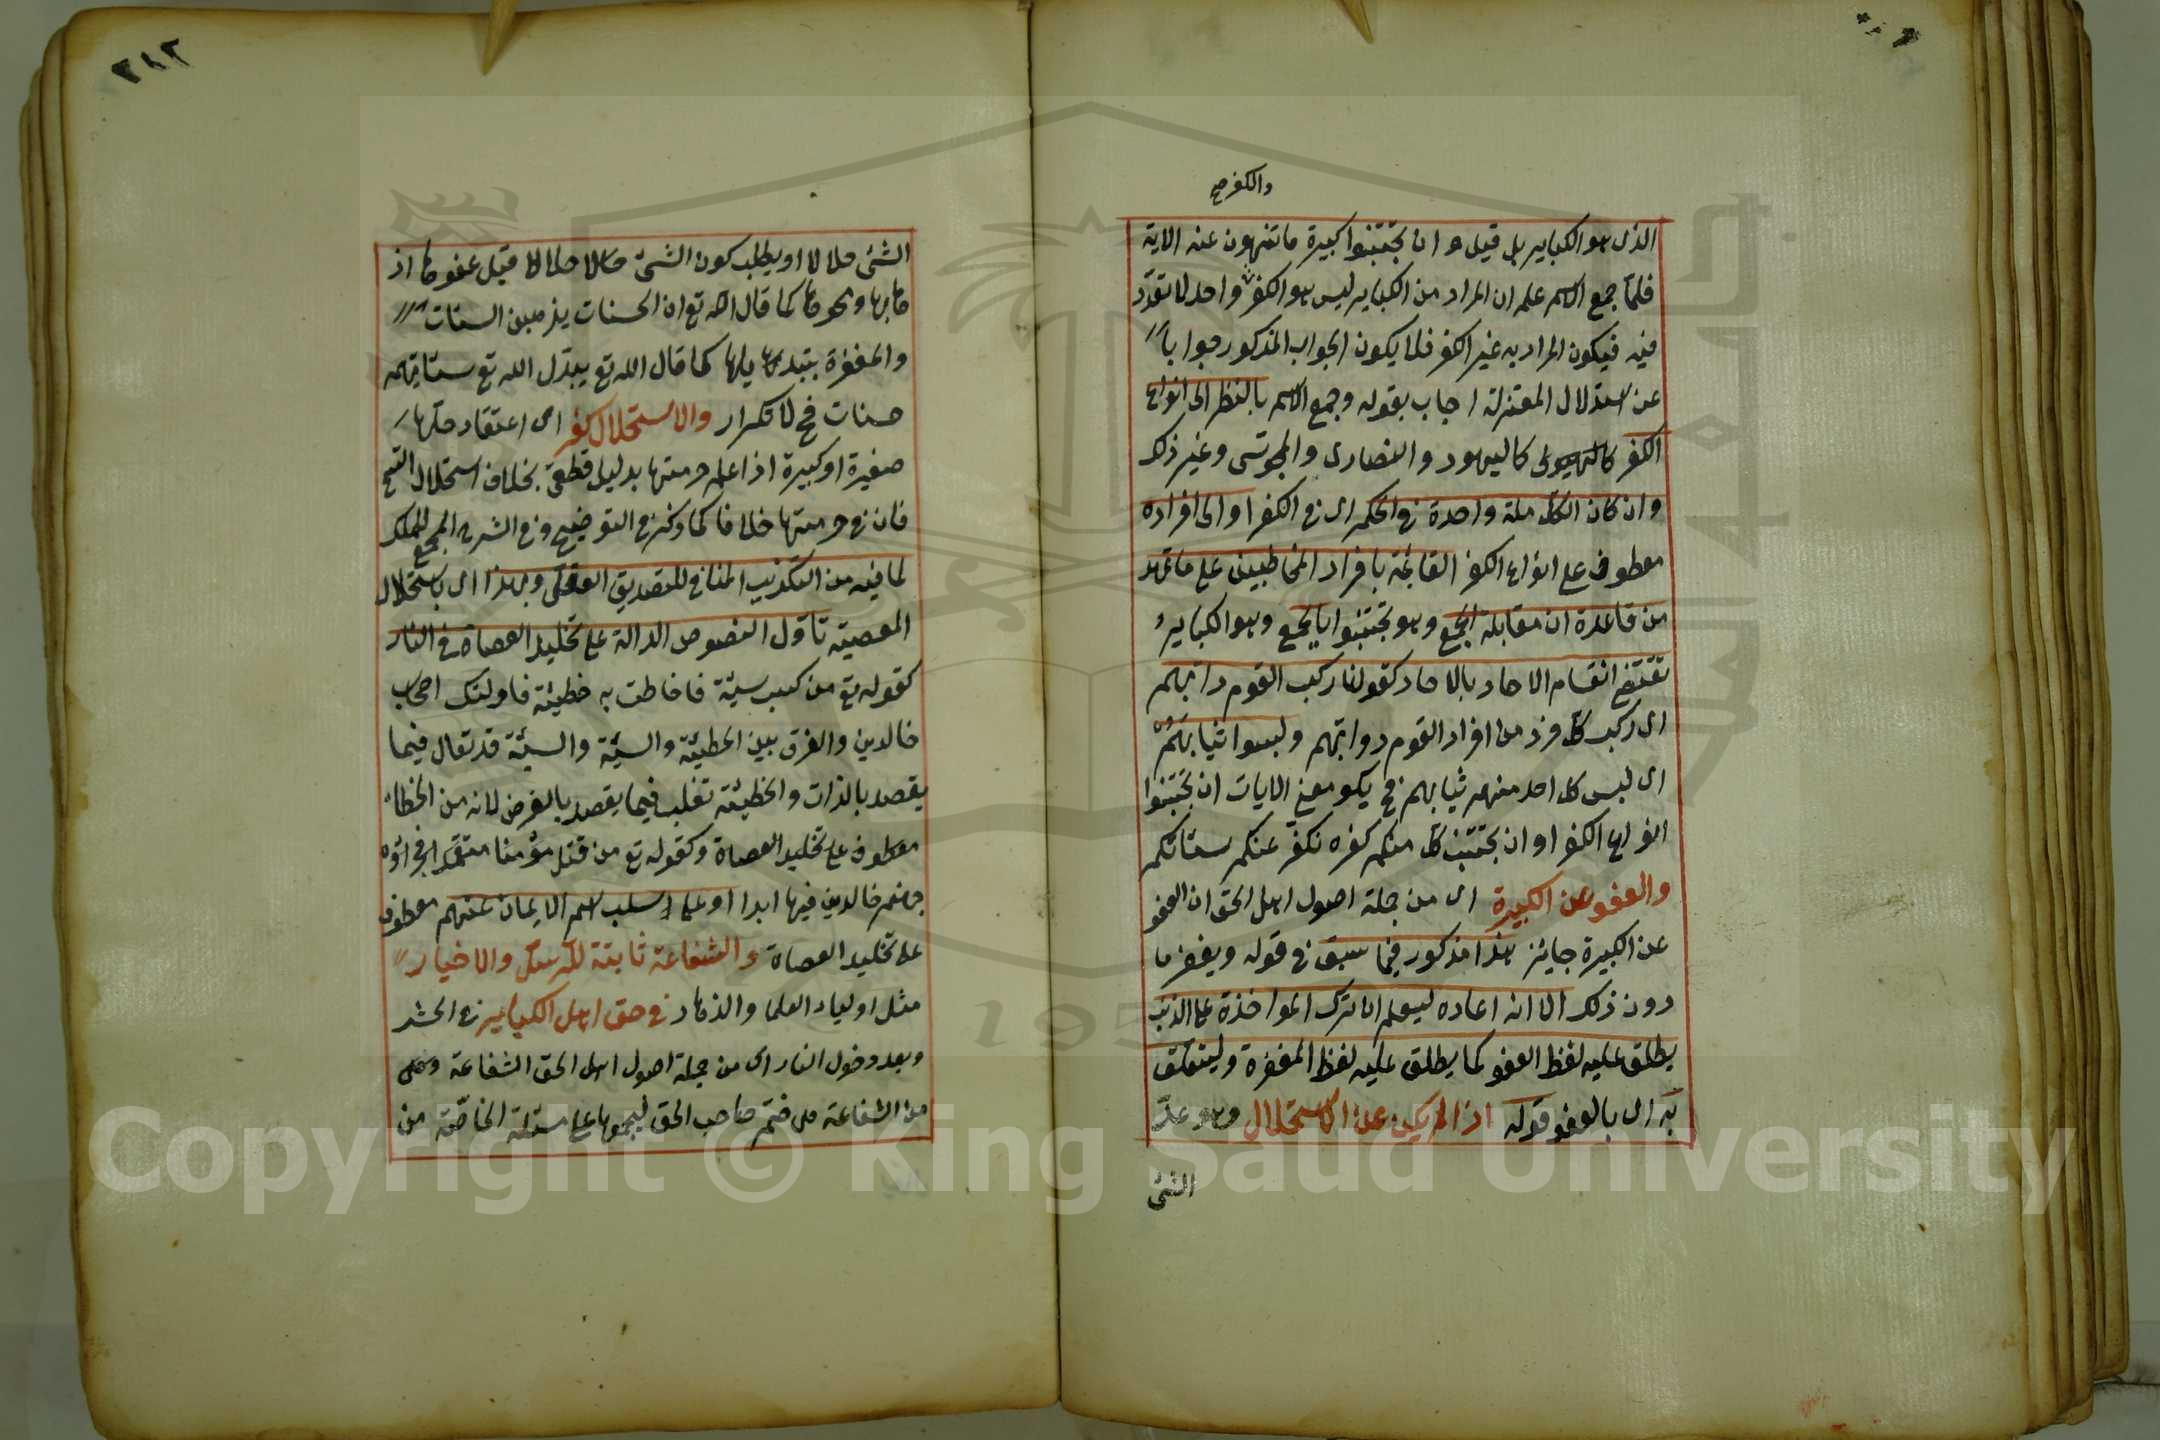 والكفر صح
الذى هو الكباير بل قيل و ان تجتنبوا كبيرة ما تنهون عنه الاية
فلما جمع الاسم علم ان المراد من الكباير ليس هو الكفر واحد لا تعدد
فيه فيكون المراد به غير الكفر فلا يكون الجواب المذكور جوابا
عن استدلال المعتزلة اجاب بقوله وجمع الاسم بالنظر الى انواع
الكفر كاليهود والنصارى والمجوسى وغير ذلك
وان كان الكل ملة واحدة فى الحكم اى فى الكفر او الى افراده
معطوف على انواع الكفر القايمة بافراد المخاطبين على ما تمهد
من قاعدة ان مقابلة الجمع وهو تجتنبوا بالجمع وهو الكباير
تقتضى انقسام الاحاد بالاحاد كقولنا ركب القوم دوابهم
اى ركب كل فرد من افراد القوم دوابهم ولبسوا ثيابهم
اى لبس كل احد منهم ثيابهم فح يكو معنى الايات ان تجتنبوا
انواع الكفر او ان تجتنب كل منكم كفره نكفر عنكم سئاتكم
والعفو عن الكبيرة اى من جملة اصول اهل الحق ان العفو
عن الكبيرة جايز هذا مذكور فيما سبق فى قوله ويغفر ما
دون ذلك الا انه اعاده ليعلم ان ترك المواخذة على الذنب
يطلق عليه لفظ العفو كما يطلق عليه لفظ المغفرة وليتعلق
به اى بالعفو قوله اذا لم يكن عن الاستحلال وهو عد
الشئ
٢١٢
الشئ حلالا او يطلب كون الشئ حلالا قيل عفوها اذ
ونحوها كما قال الله تع ان الحسنات يذهبن السئات
والمغفرة تبديلها كما قال الله تع يبدل الله تع سئاتهم
حسنات فح لا تكرار والاستحلال كفر اى اعتقاد حلها
صغيرة او كبيرة اذا علم حرمتها بدليل قطعى بخلاف استحلال
فان فى حرمتها خلافا كما ذكر فى التوضيح وفى الشرح
لما فيه من التكذيب المنافى للتصديق القلبى وبهذا اى باستحلال
المعصية تاول النصوص الدالة على تخليد العصاة فى النار
كقوله تع من كسب سيئة فاحاطت به خطيئة فاولئك اصحاب
خالدين والفرق بين الخطيئة والسيئة والسيئة قد تقال فيما
يقصد بالذات والخطيئة تغلب فيما يقصد بالعرض لانه من الخطاء
معطوف على تخليد العصاة وكقوله تع من قتل مؤمنا متعمدا فجزاؤه
جهنم خالدين فيها ابدا او على سلب اسم الايمان عنهم معطوف
على تخليد العصاة والشفاعة ثابتة للرسل والاخيار
مثل اولياء العلما والزهاد فى حق اهل الكباير فى الحشر
وبعد دخول النار اى من جملة اصول اهل الحق الشفاعة وهى
من الشفاعة صاحب الحق على مسئلة الخاصة من
Copyright © King Saud University
195